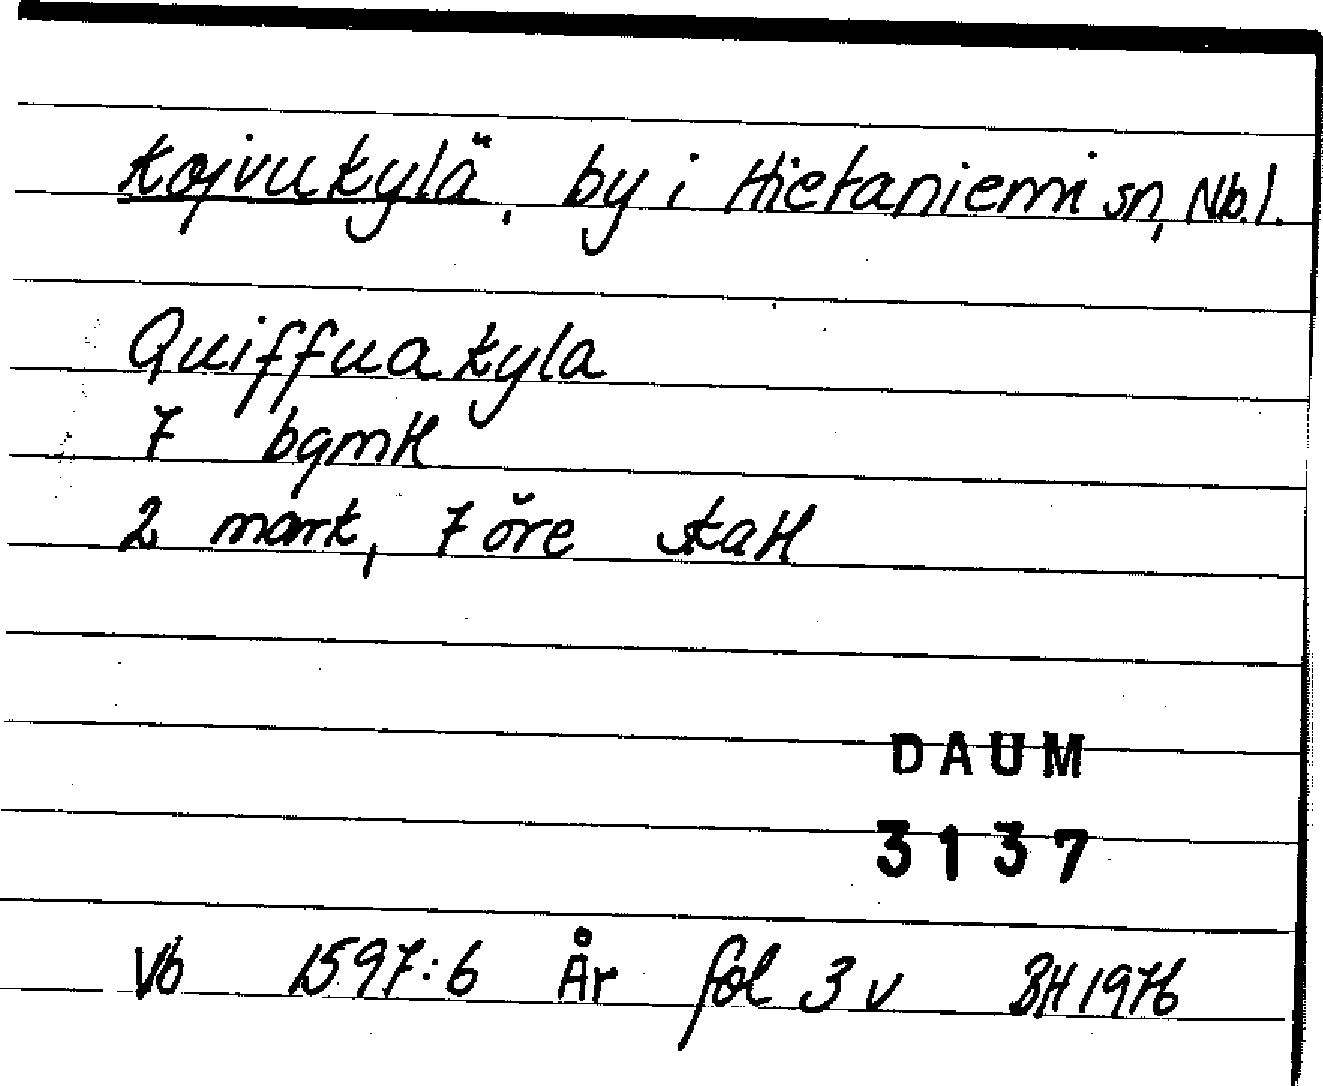 Kojvukylä, by i Hietaniemi sn, Nb.l.
Quiffua kyla
7 bgmH
2 mark, 7 öre skatt
DAUM
3137
Vb 1597:6 År fol 3 v BH 1976